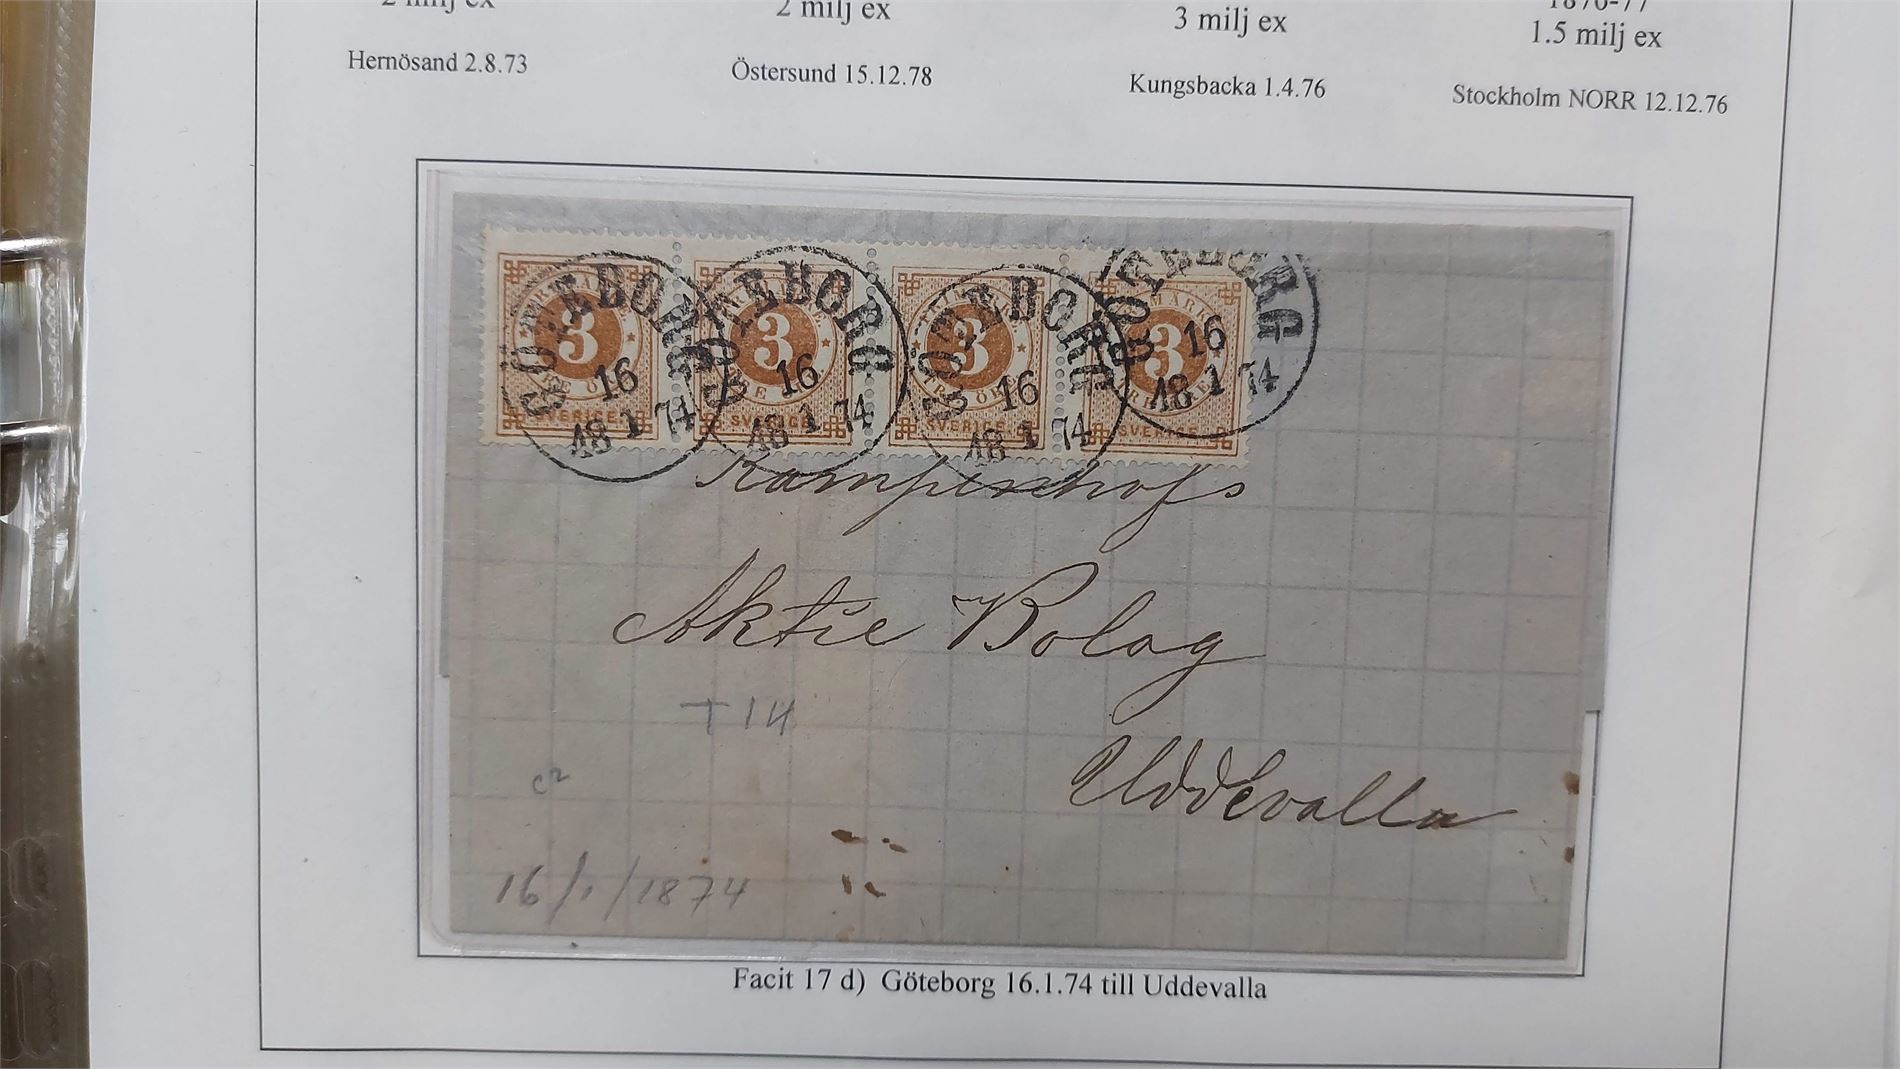 2 milj ex
2 milj ex
3 milj ex
1876-77
1.5 milj ex
Hernösand 2.8.73
Östersund 15.12.78
Kungsbacka 1.4.76
Stockholm NORR 12.12.76
GÖTEBORG 16 1 74
GÖTEBORG 16 1 74
GÖTEBORG 16 1 74
GÖTEBORG 16 1 74
3 3 3 3
SVERIGE SVERIGE SVERIGE SVERIGE
Kampenhofs
Aktie Bolag
T14
Uddevalla
c2
16/1/1874
Facit 17 d) Göteborg 16.1.74 till Uddevalla